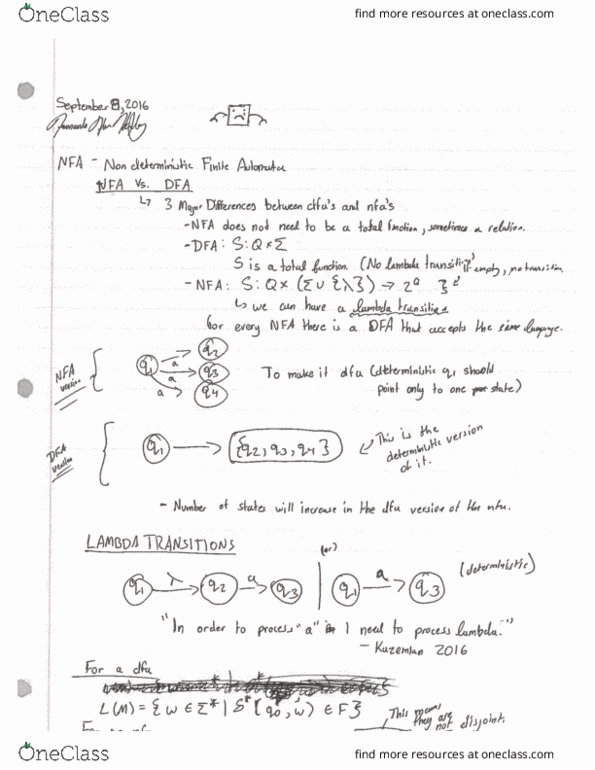 OneClass
find more resources at oneclass.com
September 8, 2016
NFA - Non deterministic Finite Automata
NFA Vs. DFA
↳ 3 Major Differences between dfa's and nfa's
- NFA does not need to be a total function, sometimes a relation.
- DFA: S: Q × Σ
S is a total function. (No lambda transition)
if empty, no transition.
- NFA: S: Q × (Σ ∪ {λ}) → 2^Q
↳ we can have a lambda transition
for every NFA there is a DFA that accepts the same language.
NFA version
q1 a q2
a q3
a q4
To make it dfa (deterministic q1 should
point only to one state)
DFA version
q1 → {q2, q3, q4}
This is the
deterministic version
of it.
- Number of states will increase in the dfa version of the nfa.
LAMBDA TRANSITIONS
(or)
q1 λ q2 a q3 | q1 a q3 (deterministic)
"In order to process "a" I need to process lambda."
- Kazemian 2016
For a dfa
L(M) = {w ∈ Σ* | S*(q0, w) ∈ F}
This means
they are
not disjoint.
OneClass
find more resources at oneclass.com